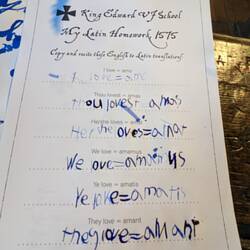 King Edward VI School
My Latin Homework 1575
Copy and recite these English to Latin translations
I love = amo
I love = amo
Thou lovest = amas
Thou lovest = amas
He/she loves = amat
He/she loves = amat
We love = amamus
We love = amamus
Ye love = amatis
Ye love = amatis
They love = amant
They love = amant